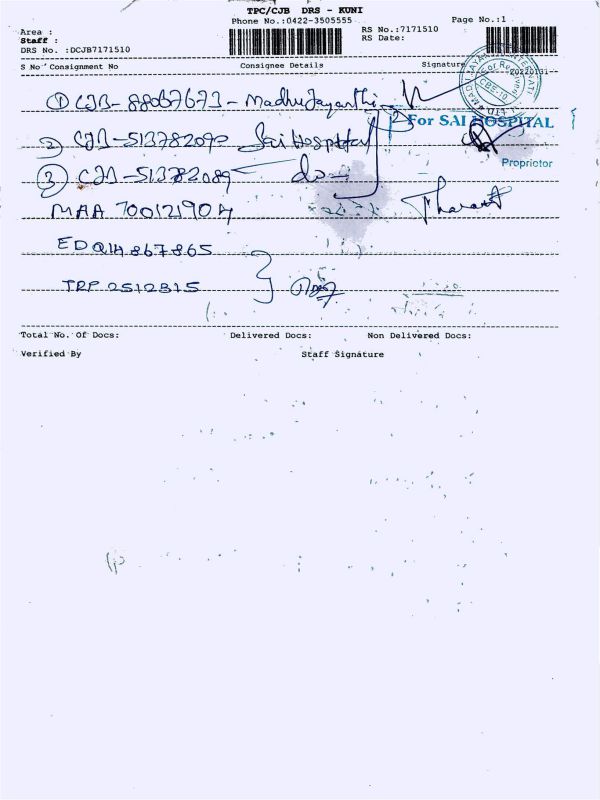 TPC/CJB DRS - KUNI
Phone No.:0422-3505555
Page No.:1
Area :
Staff :
DRS No. :DCJB7171510
RS No.:7171510
RS Date:
S No Consignment No Consignee Details Signature
20220131
① CJB-88067673 - MadhuJayanthi
For SAI HOSPITAL
2) CJB-513782090 Sai Hospital
Proprietor
③ CJB-513782089 do
MAA 700121904
EDQ14867865
TRP 2512815
Total No. Of Docs: Delivered Docs: Non Delivered Docs:
Verified By Staff Signature